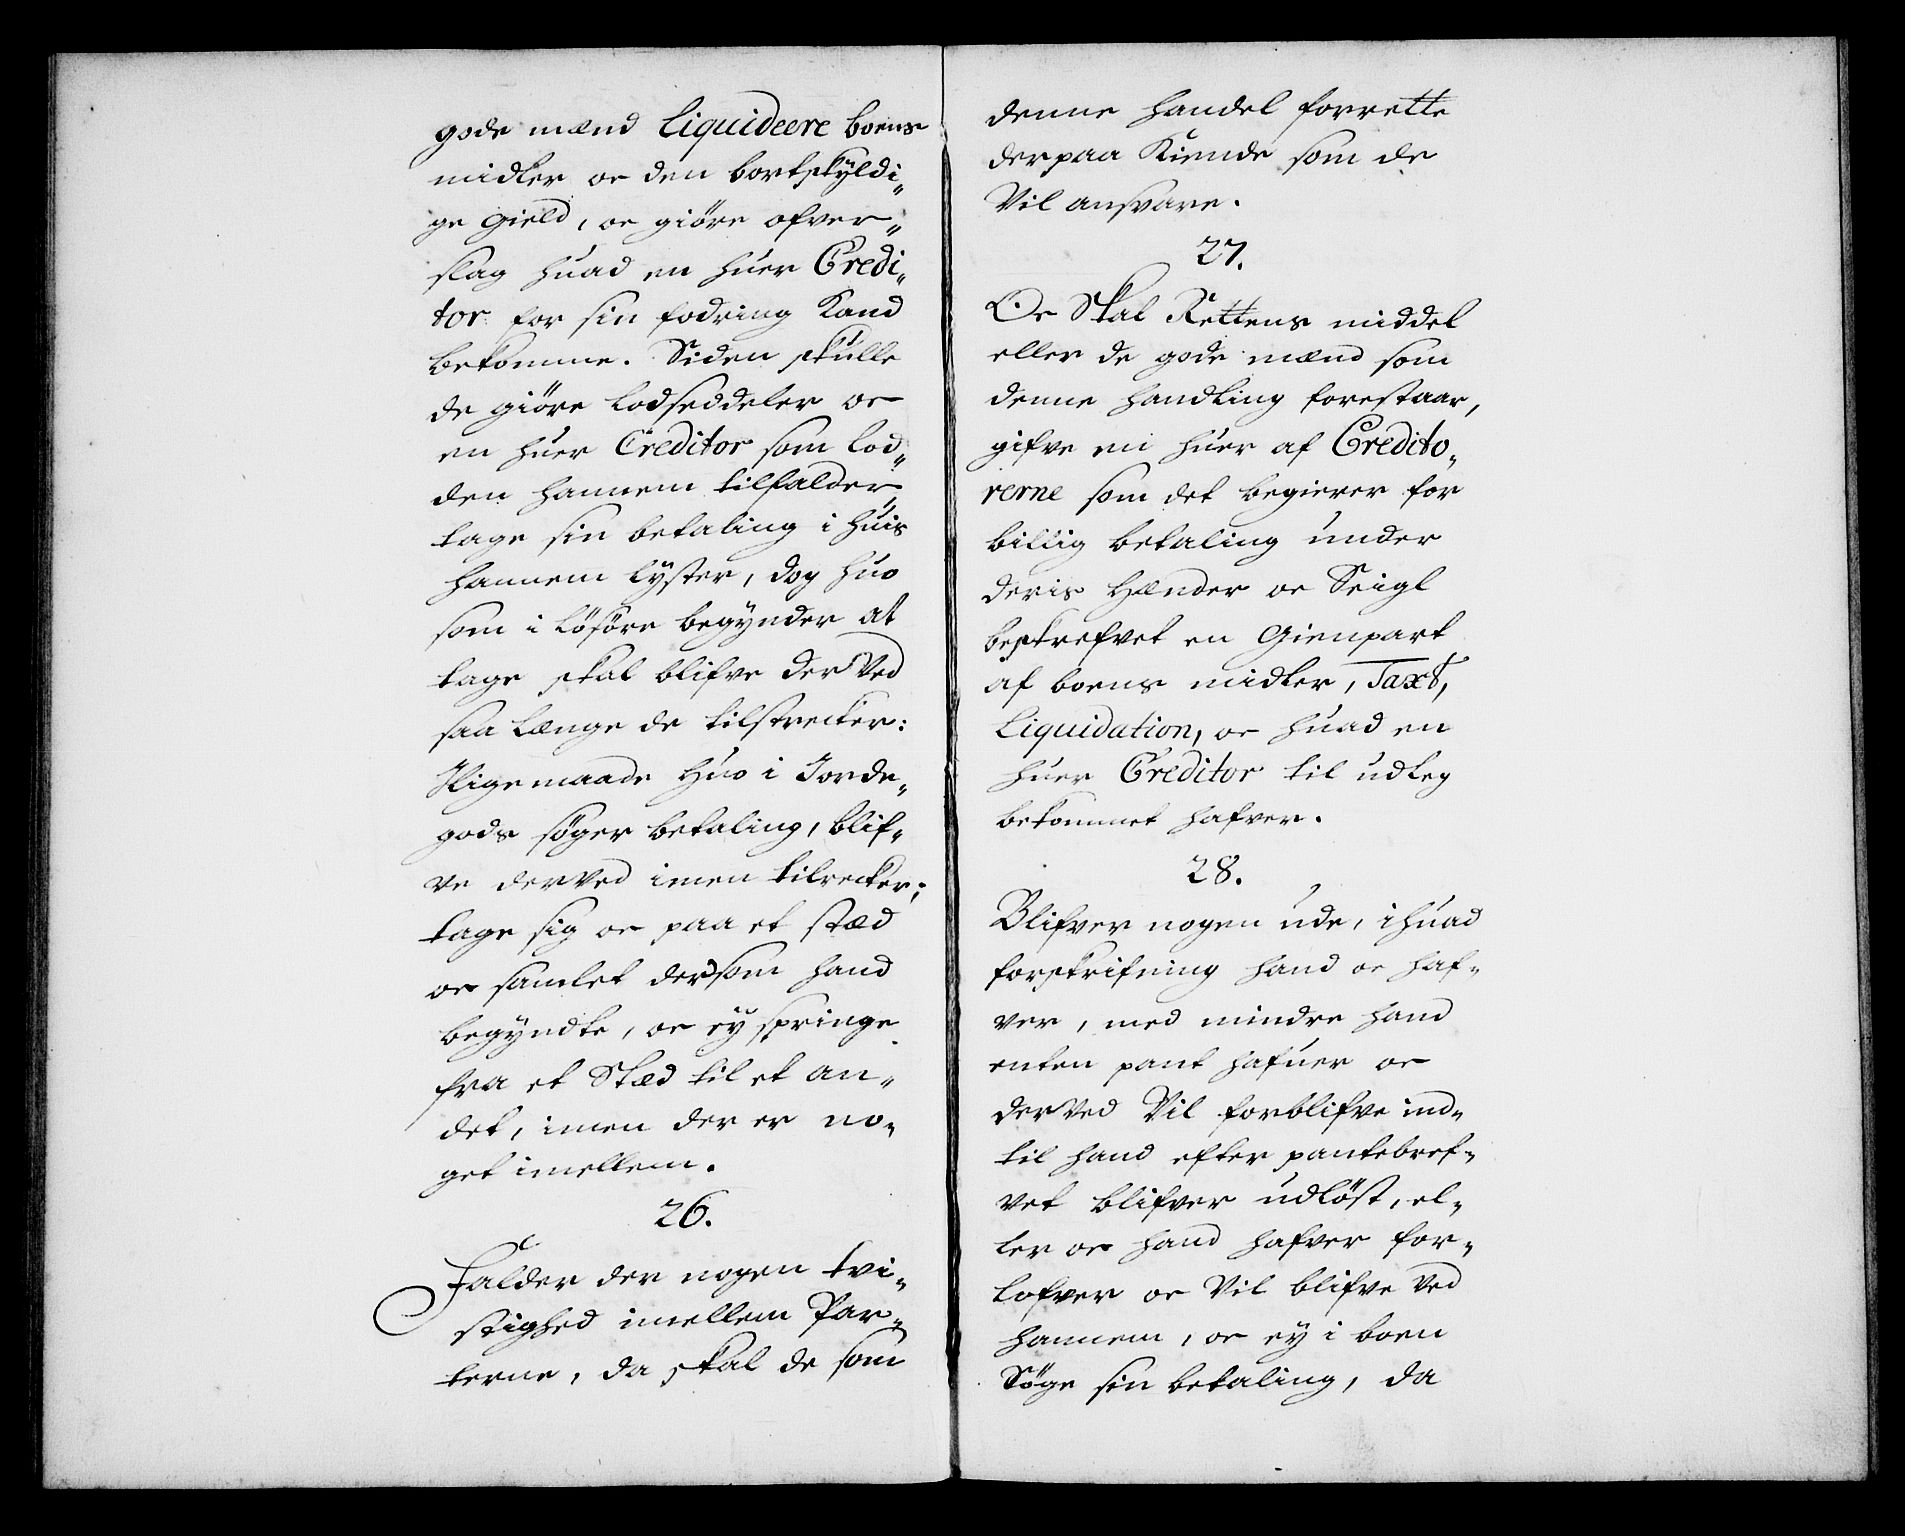 gode mænd liquideere boens
midler oc den bortskyldi„
ge gield, oc giöre ofver„
slag huad en huer Credi„
tor for sin fodring Kand
bekomme. Siden skulle
de giöre lodseddeler oc
en huer Creditor som lod„
den hannem tilfalder,
tage sin betaling i huis
hannem lÿster, dog huo
som i löSöre begÿnder at
tage skal blifve der Ved
saa længe de tilstrecker:
Iligemaade Huo i Jorde„
gods söger betaling, blif„
ve derved imen tilrecker;
tage sig oc paa et stæd
oc samlet dersom hand
begÿndte, oc eÿ springe
fra et Stæd til et an„
det, imen der er no„
get imellem.
26.
Falder der nogen tvi„
stighed imellem Par„
terne, da skal de som
denne handel forrette
derpaa Kiende som de
Vil ansvare.
27.
Oc Skal Rettens middel
eller de gode mænd som
denne handling forestaar,
gifve en huer af Credito„
rerne som det begierer for
billig betaling under
deris Hænder oc Seigl
beskrefvet en Gienpart
af boens midler, Taxt,
Liquidation, oc huad en
huer Creditor til udleg
bekommet hafver.
28.
Blifver nogen ude, ihuad
forskrifning hand oc haf„
ver, med mindre hand
enten pant hafuer oc
der Ved Vil forblifve ind„
til hand efter pantebref„
vet blifver udlöst, el„
ler oc hand hafver for„
lofver oc Vil blifve Ved
hannem, oc ey i boen
Söge sin betaling, da